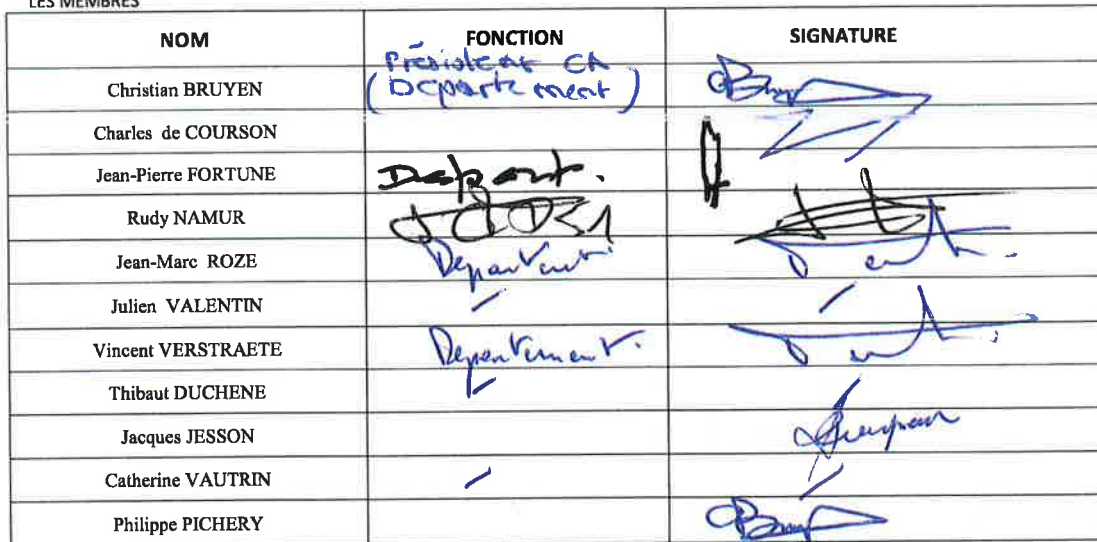 LES MEMBRES
NOM FONCTION SIGNATURE
Christian BRUYEN Président CA
(Département)
Charles de COURSON
Jean-Pierre FORTUNE Départ.
Rudy NAMUR
Jean-Marc ROZE Département
Julien VALENTIN
Vincent VERSTRAETE Département.
Thibaut DUCHENE
Jacques JESSON
Catherine VAUTRIN
Philippe PICHERY